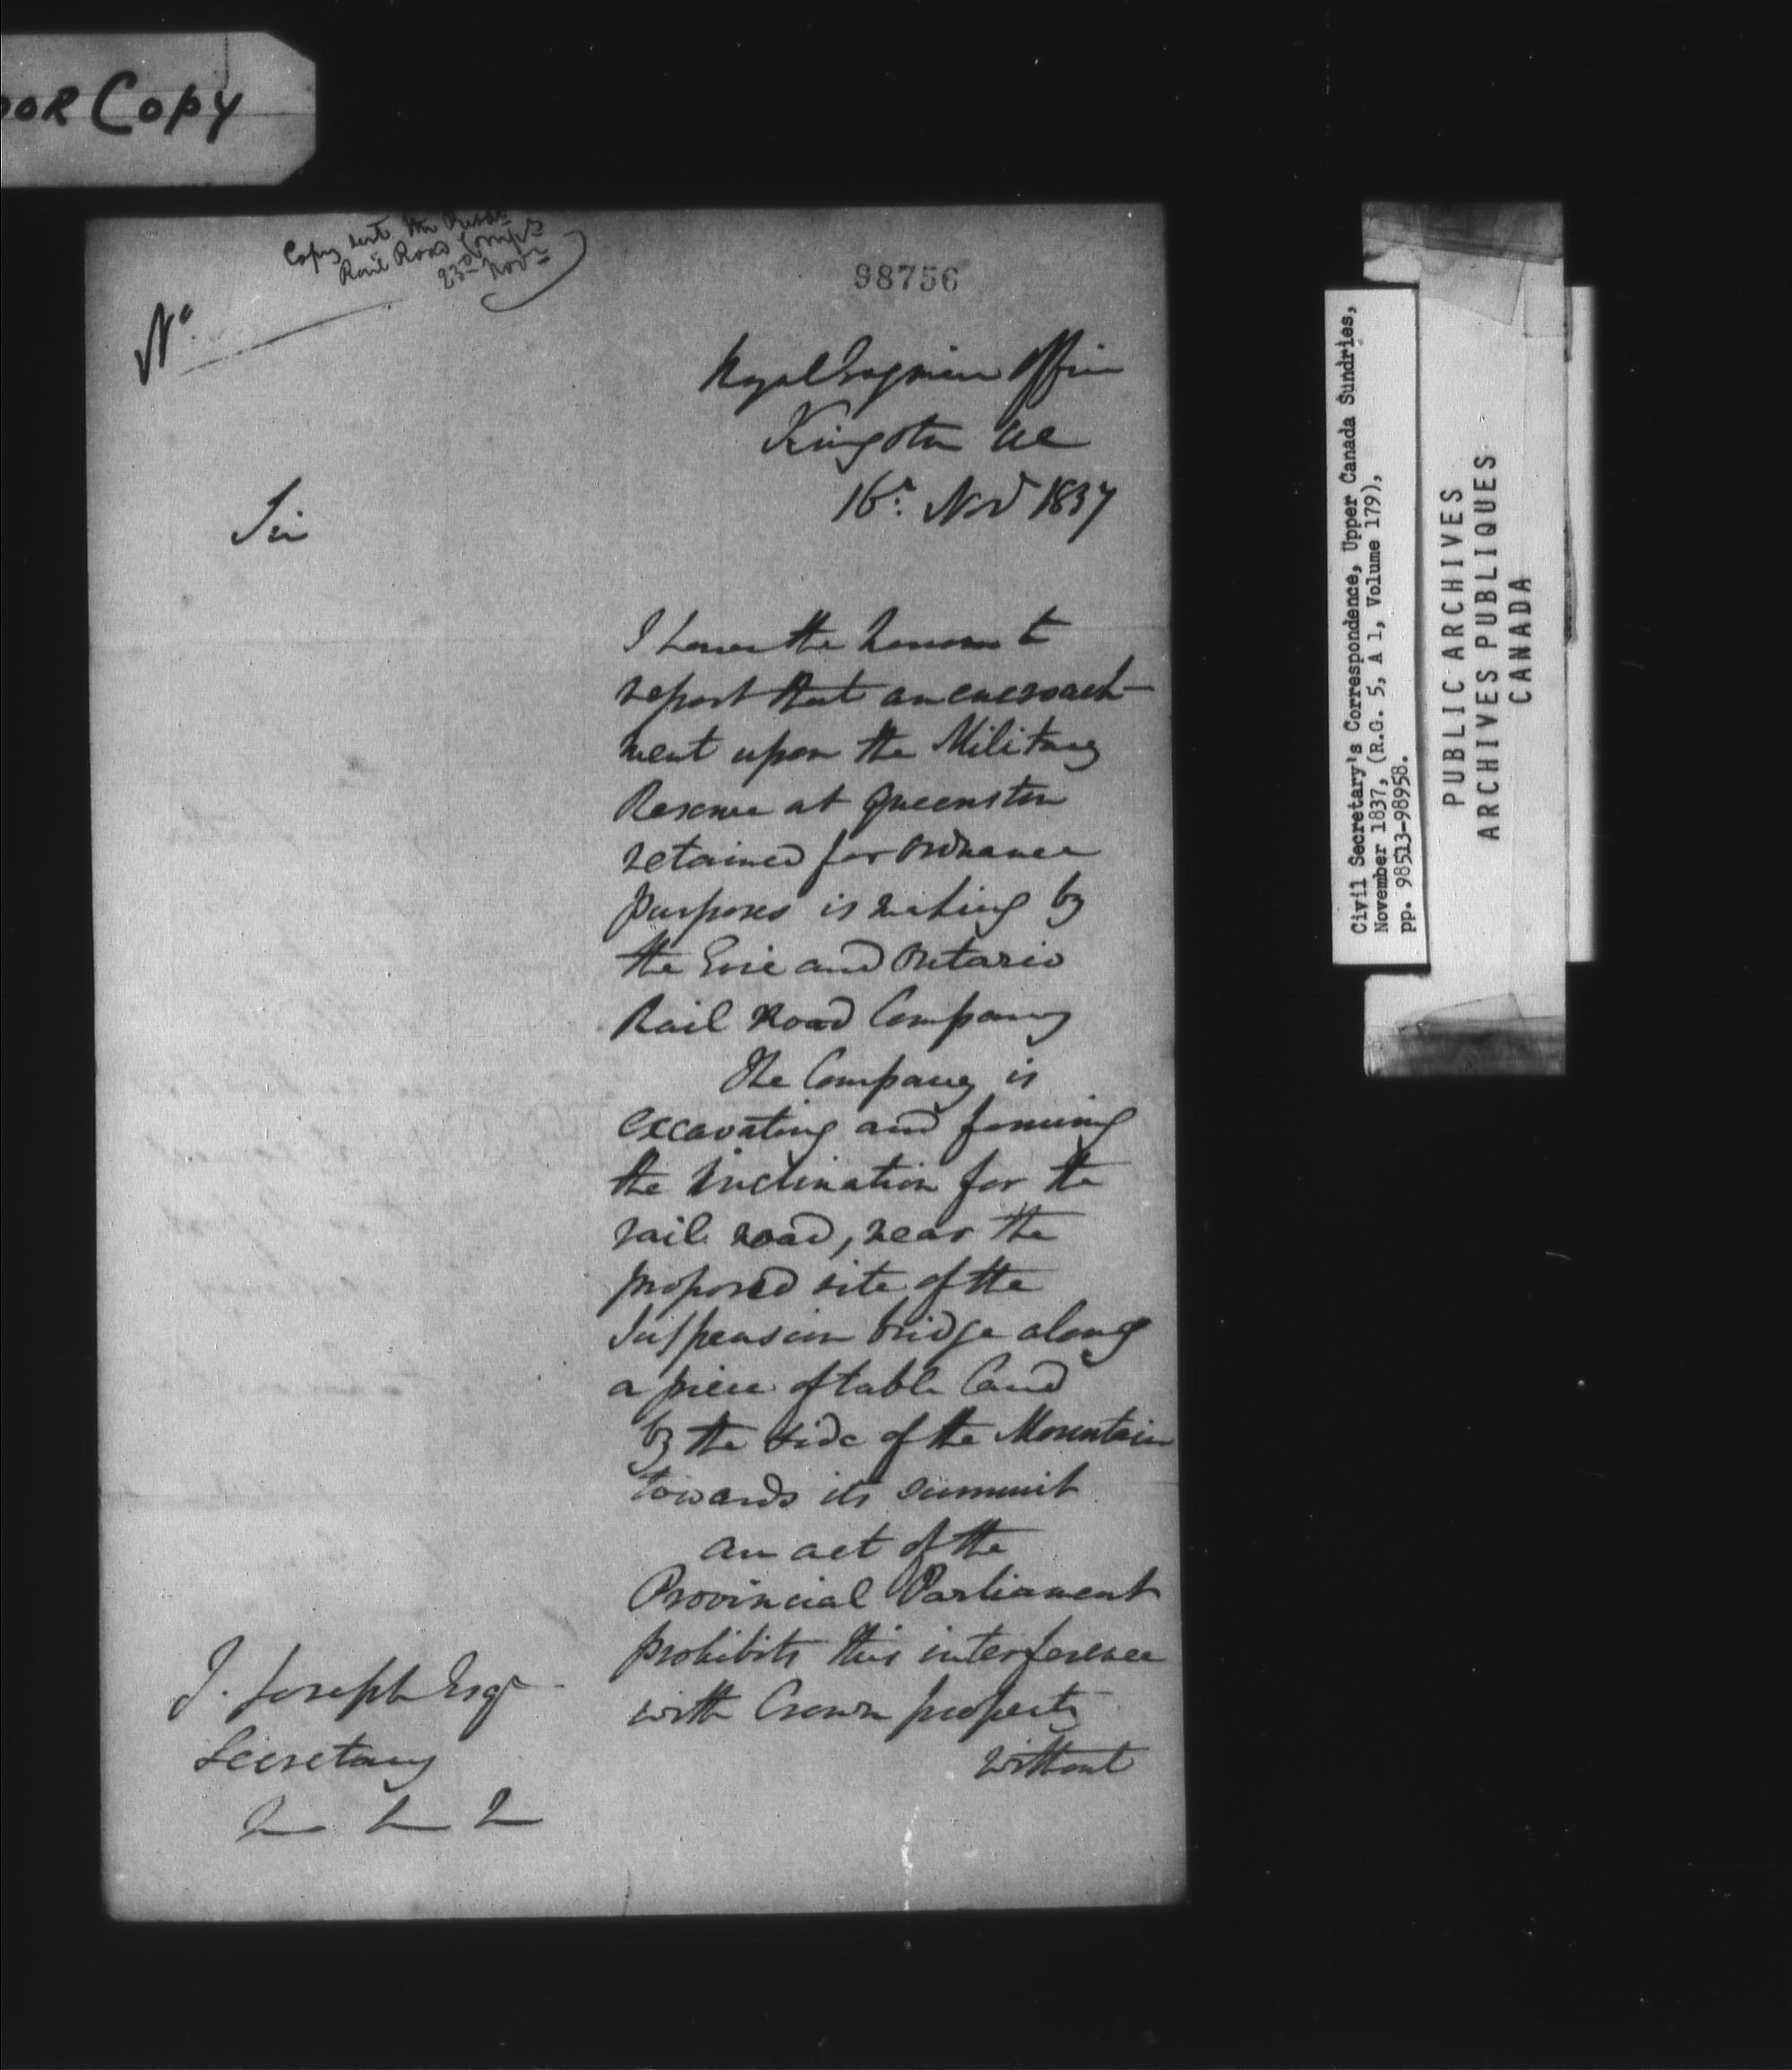 OOR COPY
Copy sent the Presdt
Rail Road Compy
23d Novr
98756
No
Royal Engineer Office
Kingston UC
16th Novr 1837
Sir
I have the honour to
report that an encroach-
ment upon the Military
Reserve at Queenston
retained for Ordnance
purposes is making by
the Erie and Ontario
Rail Road Company
The Company is
excavating and forming
the inclination for the
rail road, near the
proposed site of the
Suspension bridge along
a piece of table land
by the side of the Mountain
towards its summit
an act of the
Provincial Parliament
prohibits this interference
with Crown property
without
J. Joseph Esqr
Secretary
Civil Secretary's Correspondence, Upper Canada Sundries,
November 1837, (R.G. 5, A 1, Volume 179),
pp. 98513-98958.
PUBLIC ARCHIVES
ARCHIVES PUBLIQUES
CANADA